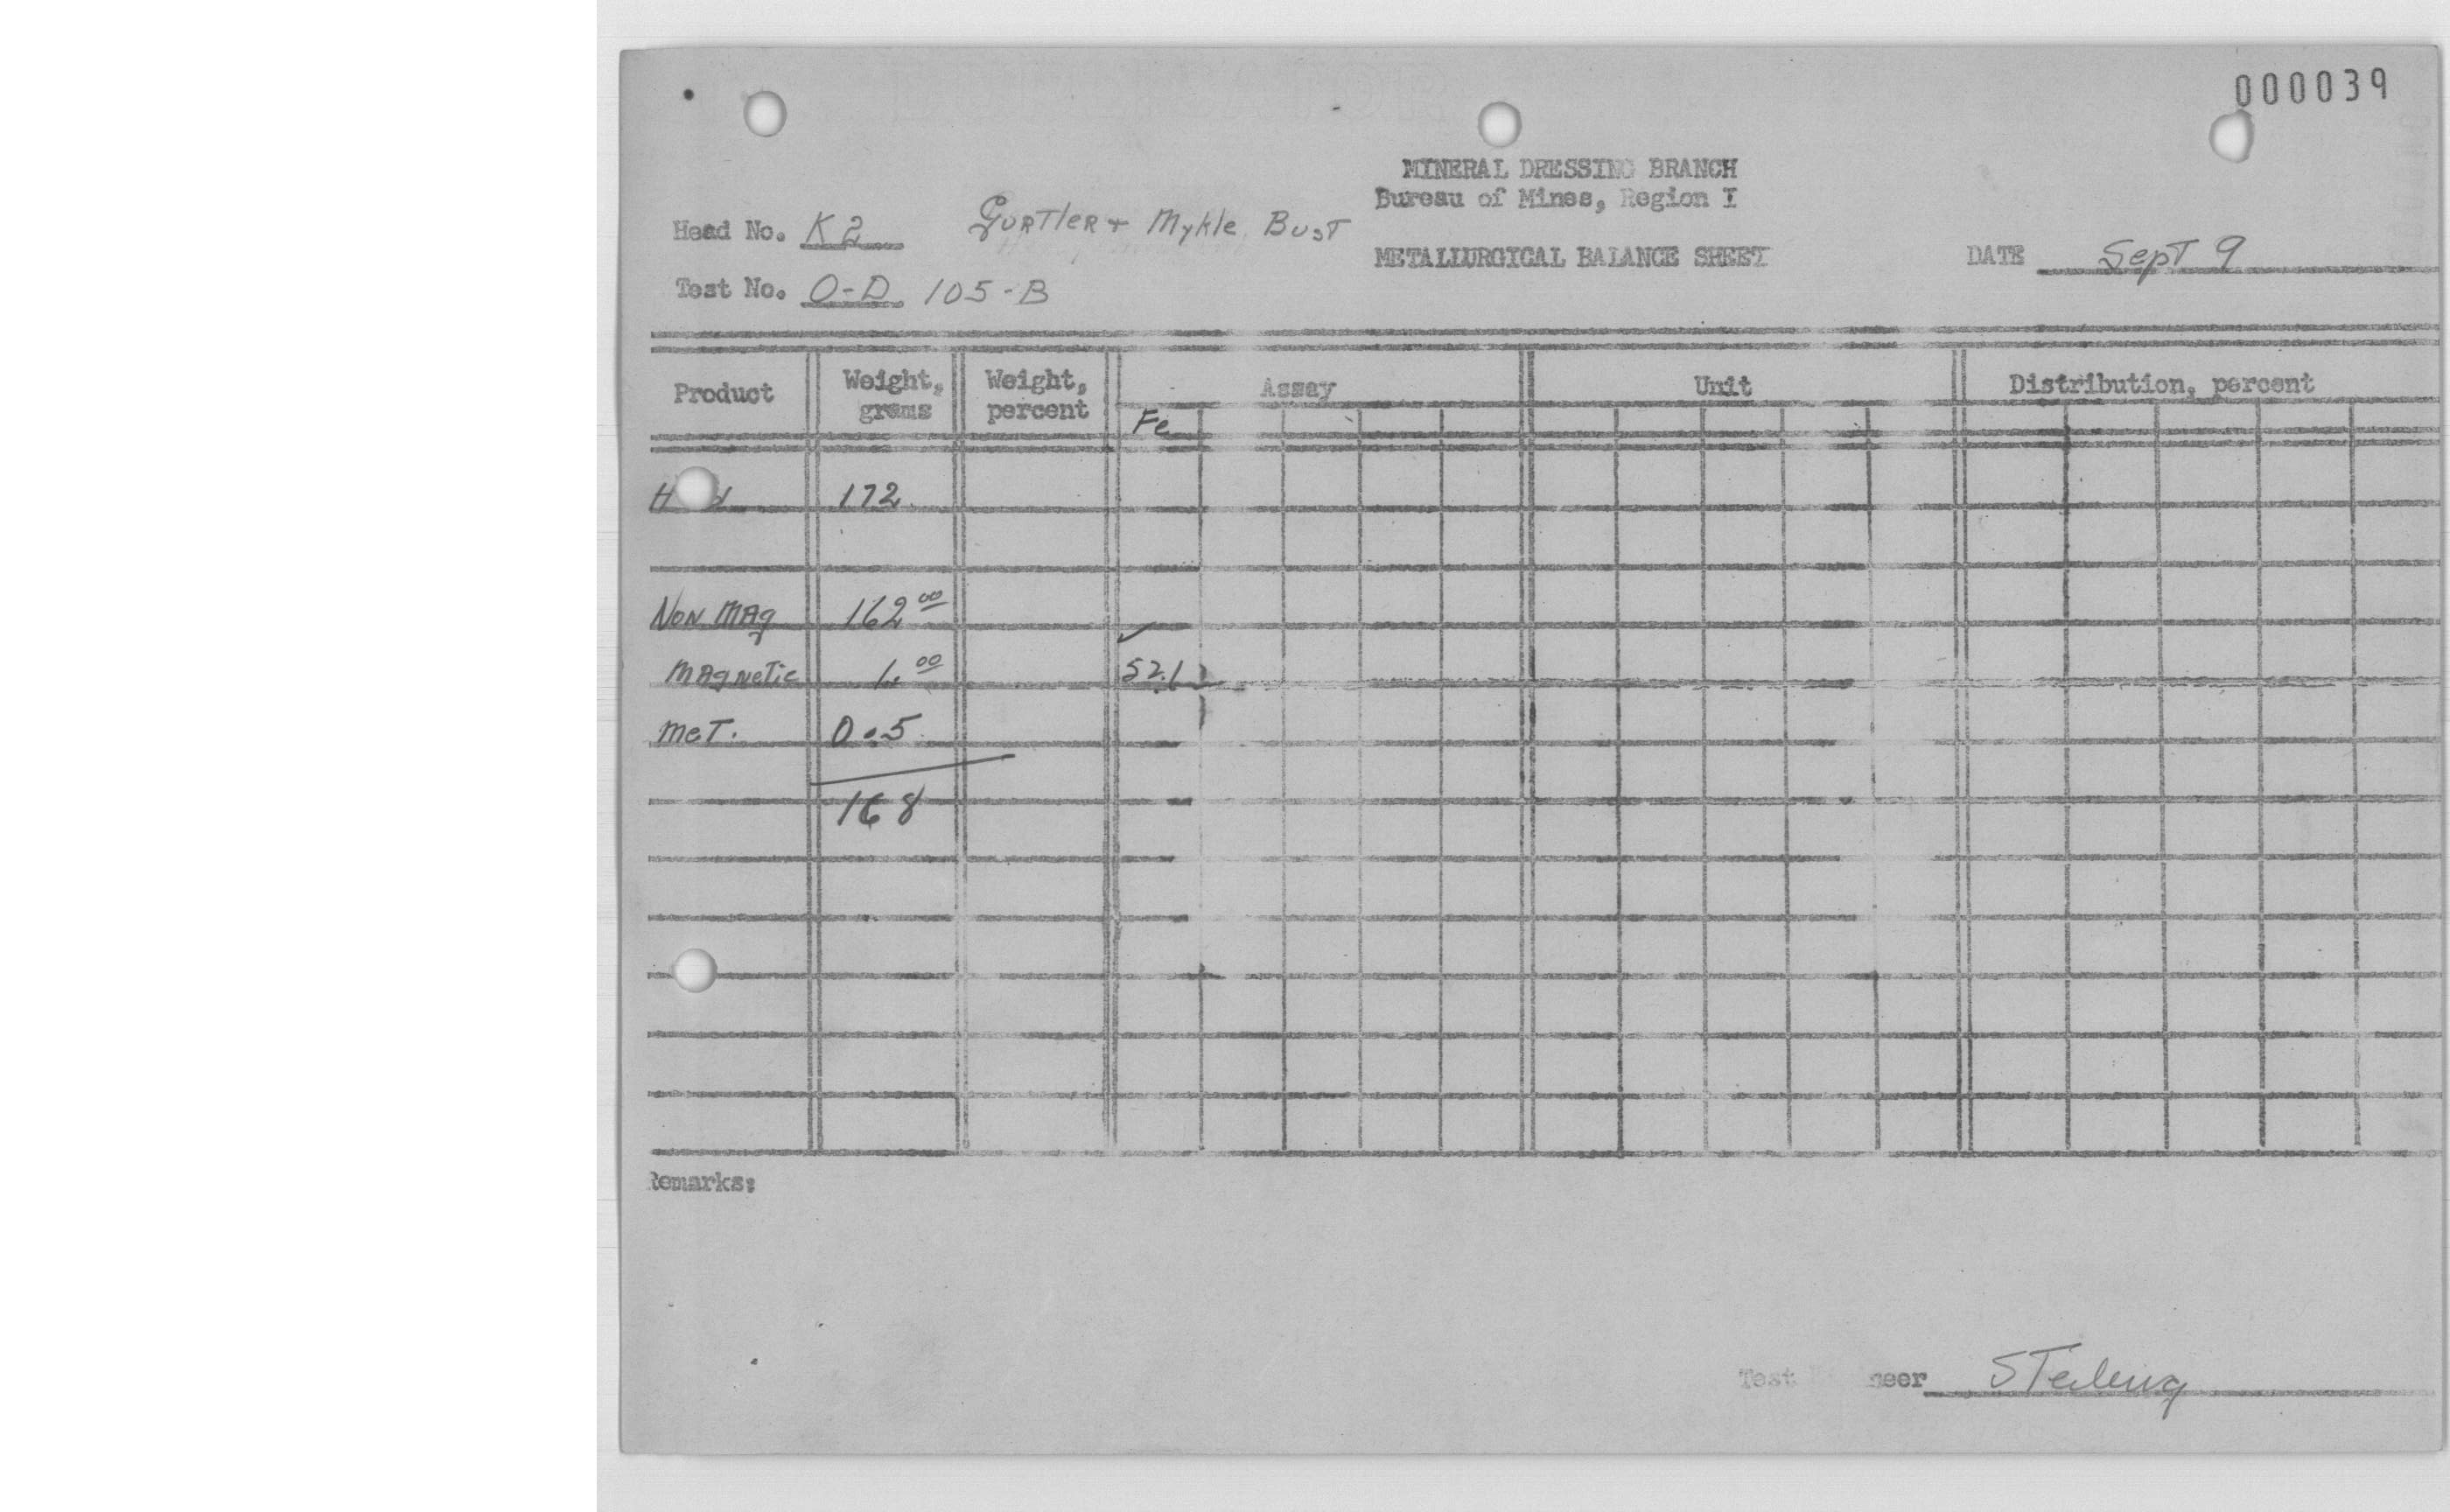 000039
MINERAL DRESSING BRANCH
Bureau of Mines, Region I
Head No. K2 Gurtler + Mykle Bust
METALLURGICAL BALANCE SHEET DATE Sept 9
Test No. O-D 105-B
Product Weight, grams Weight, percent Assay Unit Distribution, percent
Fe
172
Non Mag 162 00
Magnetic 1. 00 52.1
Met. 0.5
168
Remarks:
Test